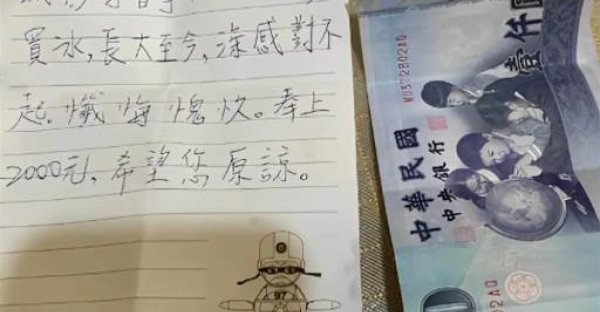 買冰,長大至今,深感對不
起。懺悔愧疚。奉上
2000元,希望您原諒。
97
中華民國
中央銀行
壹仟圓
02AQ